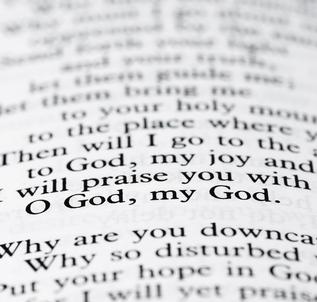 and your truth,
let them guide me;
let them bring me
to your holy moun
to the place where y
Then will I go to the a
to God, my joy and
will praise you with
O God, my God.
Why are you downca
Why so disturbed
Put your hope in God
I will yet praise